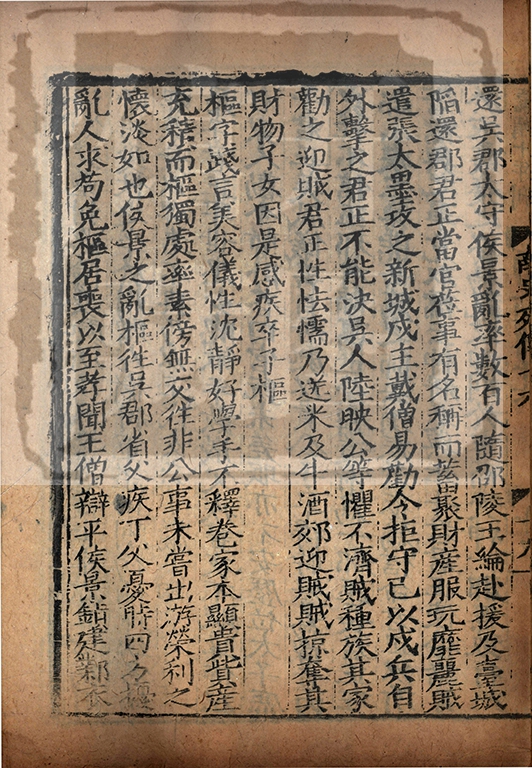 還吳郡太守侯景亂率數百人隨邵陵王綸赴援及臺城
陷還郡君正當官莅事有名稱而蓄聚財産服玩靡麗賊
遣張太墨攻之新城戍主戴僧易勸令拒守己以戍兵自
外擊之君正不能決吳人陸映公等懼不濟賊種族其家
勸之迎賊君正性怯懦乃送米及牛酒郊迎賊賊掠奪其
財物子女因是感疾卒子樞
樞字踐言美容儀性沈靜好學手不釋卷家本顯貴貲産
充積而樞獨處率素傍無交往非公事未嘗出游榮利之
懷淡如也侯景之亂樞往吳郡省父疾丁父憂時四方擾
亂人求苟免樞居喪以至孝聞王僧辯平侯景鎮建鄴衣